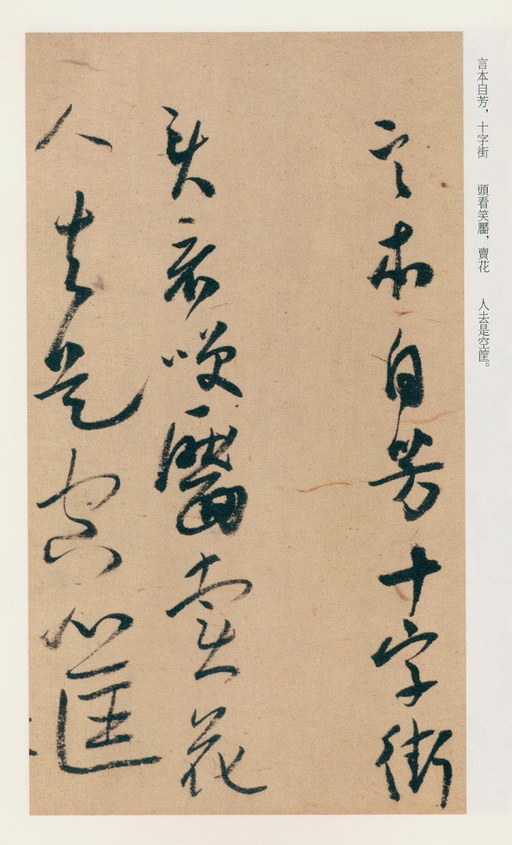 言本自芳，十字街　頭看笑靨，賣花　人去是空筐。
言本自芳十字街
頭看笑靨賣花
人去是空筐